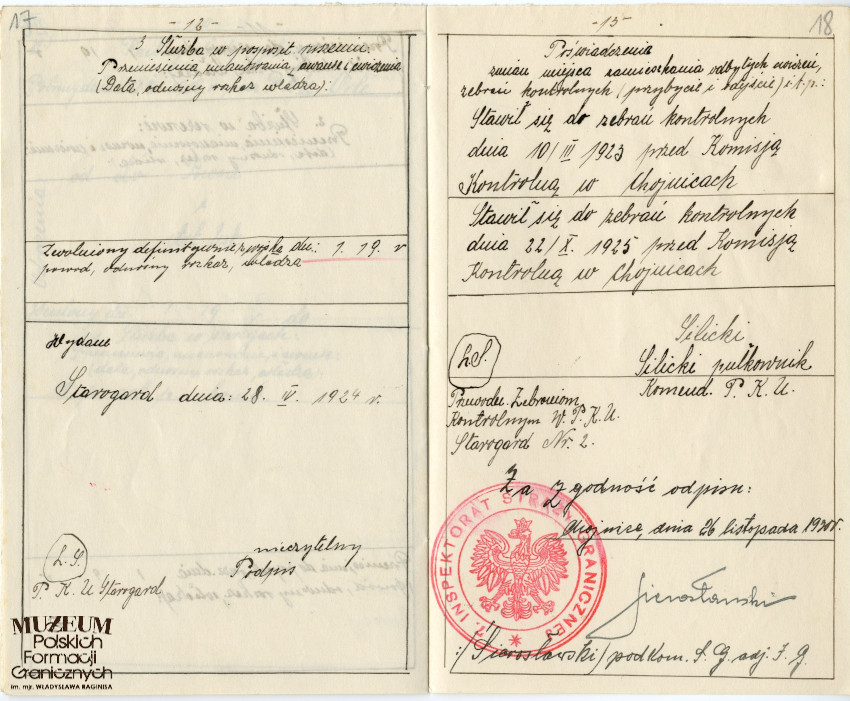 17
- 12 -
3 Służba w pospolit ruszeniu.
Przeniesienia, mianowania, awanse i ćwiczenia
(Data, odnośny rozkaz władza):
Zwolniony definitywnie z wojska dn.: 1. 19. r
powód, odnośny rozkaz, władza
Wydane
Starogard dnia: 28. IV. 1924 r.
L. S.
nieczytelny
Podpis
P. K. U Starogard
MUZEUM
Polskich
Formacji
Granicznych
im. mjr. WŁADYSŁAWA RAGINISA
18
- 13 -
Poświadczenia
zmian miejsca zamieszkania odbytych ćwiczeń,
zebrań kontrolnych (przybycie i odejście) i t. p.:
Stawił się do zebrań kontrolnych
dnia 10/III 1923 przed Komisją
Kontrolną w Chojnicach
Stawił się do zebrań kontrolnych
dnia 22/X. 1925 przed Komisją
Kontrolną w Chojnicach
L. S.
Silicki
Silicki pułkownik
Komend. P. K. U.
Przewodn. Zebraniom
Kontrolnym W. P. K. U.
Starogard Nr. 2.
Za Zgodność odpisu:
Chojnice, dnia 26 listopada 1930 r.
INSPEKTORAT STRAŻY GRANICZNEJ
Sierosławski
:/Sierosławski/ podkom. S. G. adj. I. G.